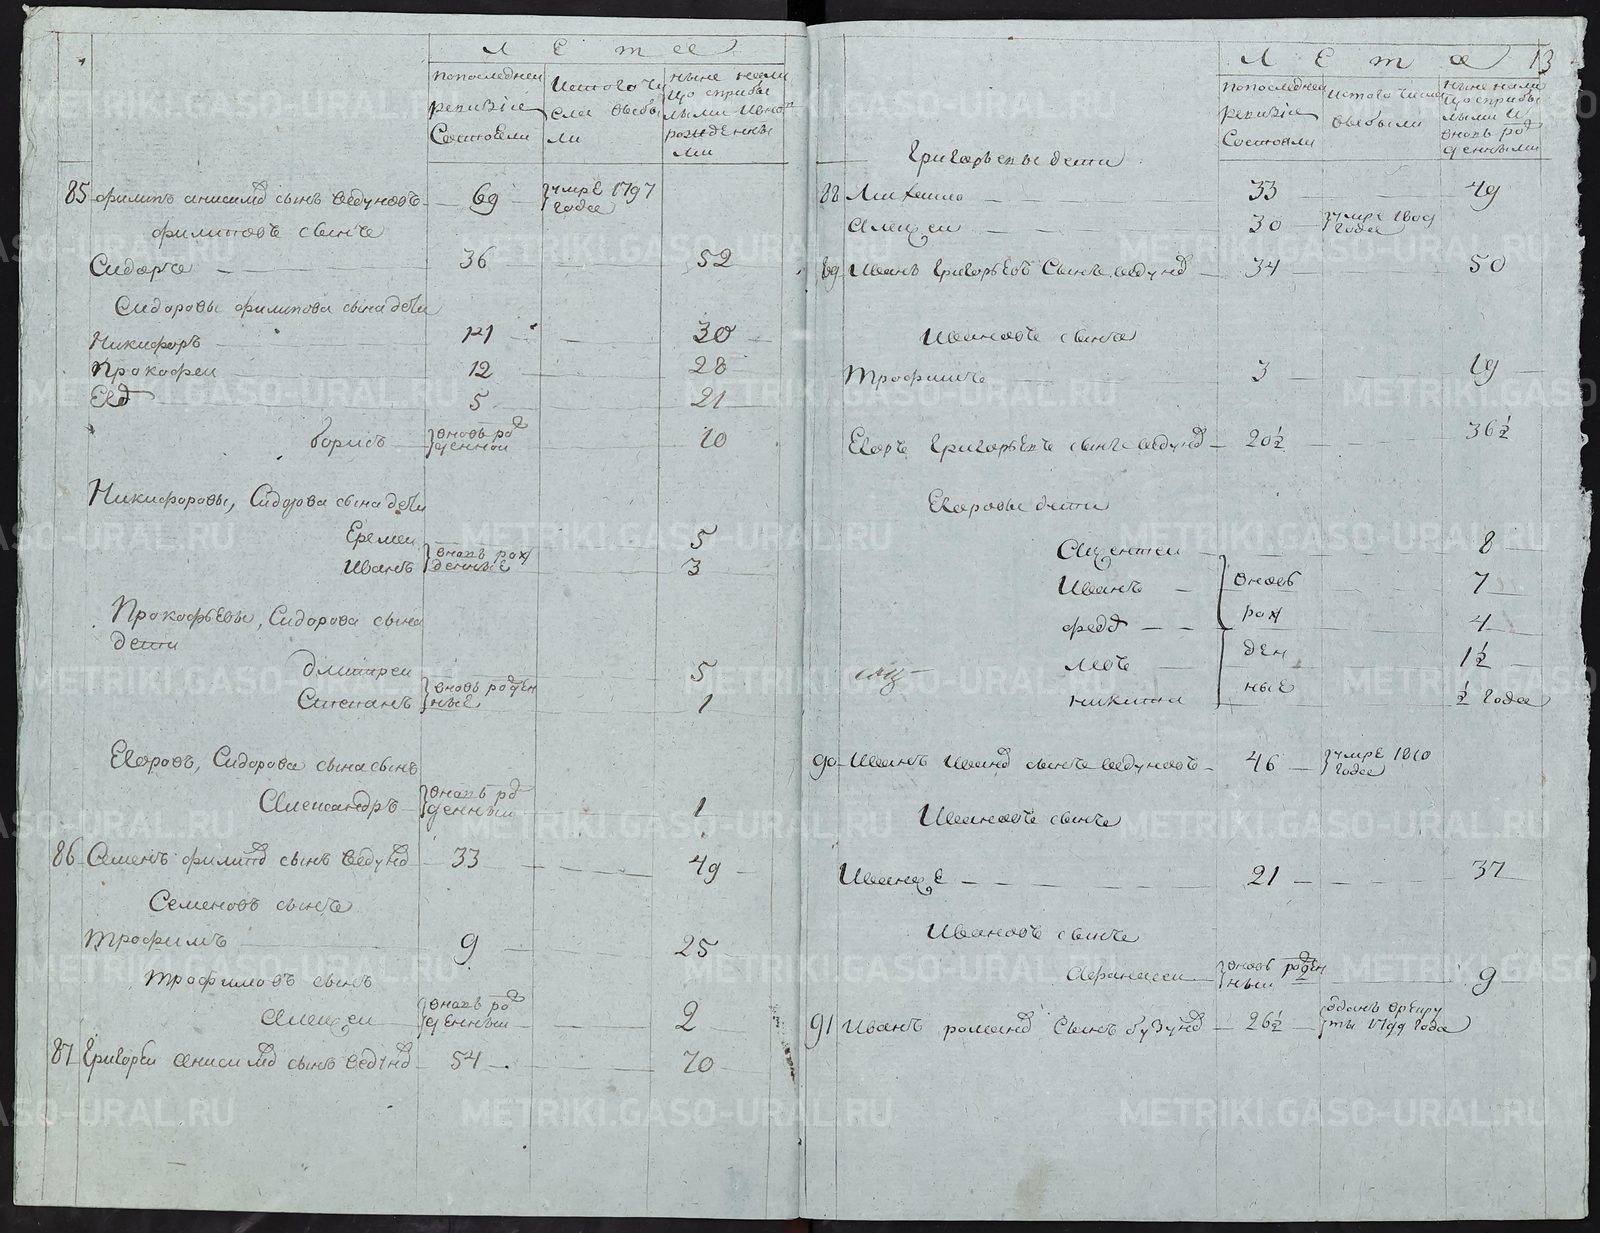 Лета
попоследней ревизiи состояли
Изтого числа выбыли
ныне налицо сприбылыми ивновь рожденными
85 Филипъ анисимовъ сынъ ведуновъ 69 умре 1797 года
филиповъ сынъ
Сидоръ 36 52
Сидоровы филипова сына дети
Никифоръ 14 30
Прокофей 12 28
Егоръ 5 21
борисъ вновь рожденной 10
Никифоровы, Сидорова сына дети
Еремей 5
Иванъ вновь рожденные 3
Прокофьевы, Сидорова сына
дети
дмитрей 5
Степанъ вновь рожденные 1
Егоровъ, Сидорова сына сынъ
Александръ вновь рожденный 1
86 Семенъ филиповъ сынъ ведуновъ 33 49
Семеновъ сынъ
трофимъ 9 25
трофимовъ сынъ
Алексей вновь рожденный 2
87 Григорей анисимовъ сынъ ведуновъ 54 70
Лета 13
попоследней ревизiи состояли
истого числа выбыли
ныне налицо сприбылыми и вновь рожденными
Григорьевы дети
88 Михайло 33 49
Алексей 30 умре 1809 года
89 Иванъ Григорьевъ Сынъ ведуновъ 34 50
Ивановъ сынъ
трофимъ 3 19
Егоръ Григорьевъ сынъ ведуновъ 20½ 36½
Егоровы дети
Аксентей 8
Иванъ вновь 7
федоръ рож 4
левъ ден 1½
никита ные ½ года
90 Иванъ Ивановъ сынъ ведуновъ 46 умре 1810 года
Ивановъ сынъ
Иванъ же 21 37
Ивановъ сынъ
Афанасей вновь рожденный 9
91 Иванъ романовъ Сынъ бузуновъ 26½ отданъ врекруты 1799 года
METRIKI.GASO-URAL.RU